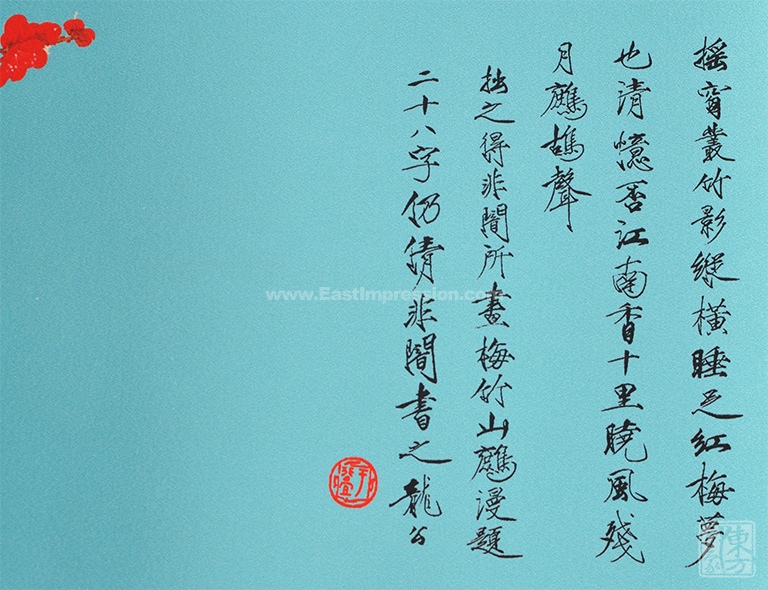 搖窗叢竹影縱橫睡足紅梅夢
也清憶否江南香十里曉風殘
月鷓鴣聲
拙之得非闇所畫梅竹山鷓漫題
二十八字仍倩非闇書之龍公
www.EastImpression.com